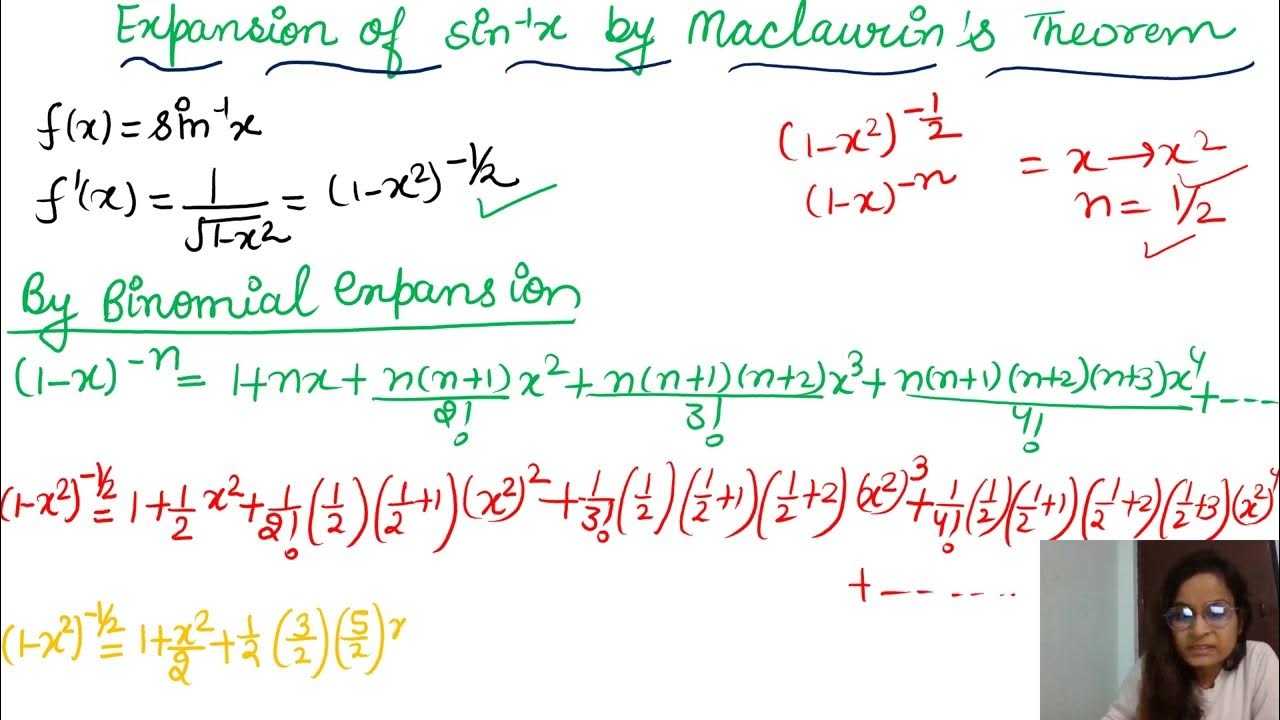 Expansion of sin⁻¹x by Maclaurin's Theorem
f(x) = sin⁻¹x
f'(x) = 1/√1-x² = (1-x²)^-1/2 ✓
(1-x²)^-1/2
(1-x)^-n
= x → x² ✓
n = 1/2 ✓
By Binomial Expansion
(1-x)^-n = 1+nx+ n(n+1)/2! x² + n(n+1)(n+2)/3! x³ + n(n+1)(n+2)(n+3)/4! x⁴ + ----
(1-x²)^-1/2 = 1+1/2 x² + 1/2! (1/2)(1/2+1)(x²)² + 1/3! (1/2)(1/2+1)(1/2+2)(x²)³ + 1/4! (1/2)(1/2+1)(1/2+2)(1/2+3)(x²)⁴
+ ------
(1-x²)^-1/2 = 1+x²/2 + 1/2 (3/2)(5/2)